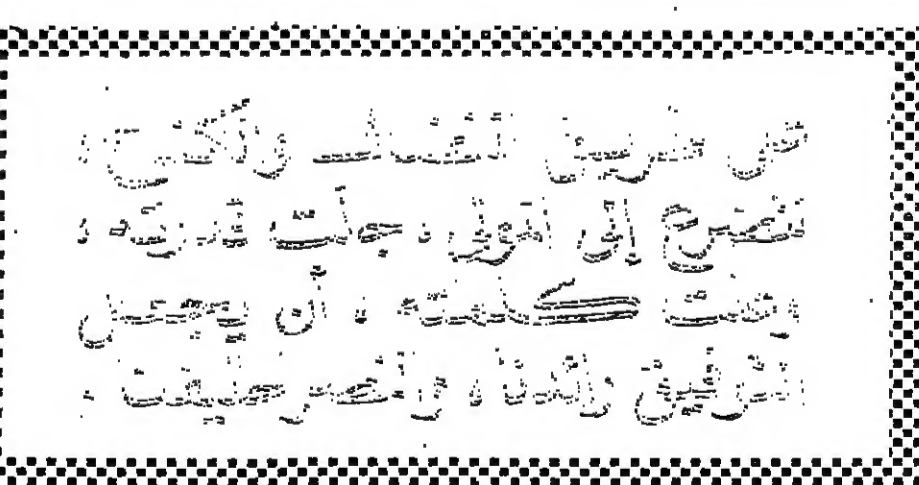 في طريق النضال والكفاح ،
نضرع إلى المولى ، جلت قدرته ،
وعزت كلمته ، أن يجعل
التوفيق رائدنا ، والنصر حليفنا .